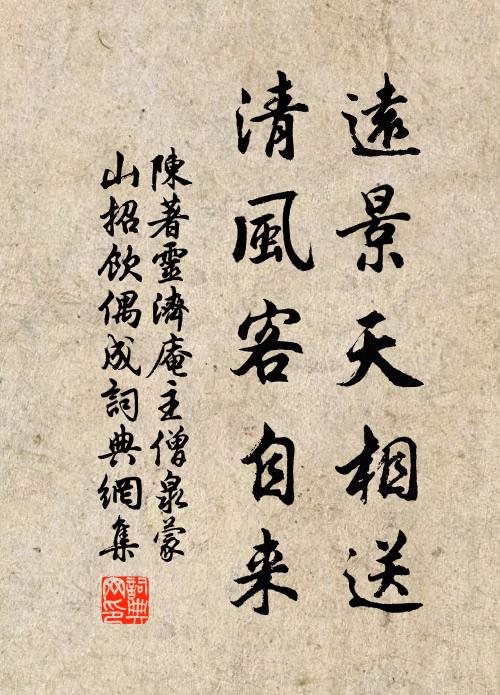 遠景天相送
清風客自来
陳著靈濟庵主僧泉蒙
山招飲偶成詞典網集
詞典
网印